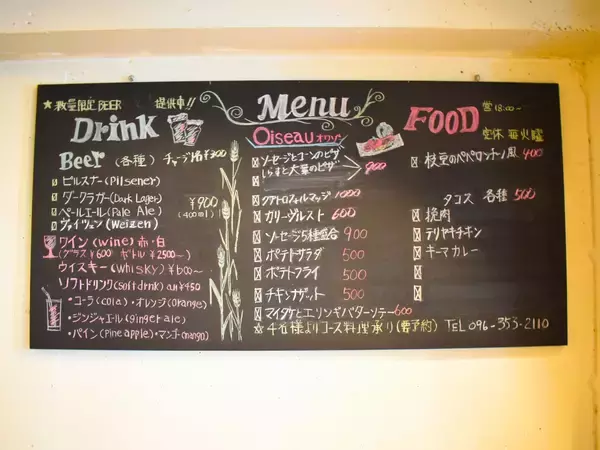 ★数量限定BEER 提供中!!
Drink
Beer (各種) チャージ料¥300
ピルスナー(Pilsener)
ダークラガー(Dark Lager)
ペールエール(Pale Ale)
ヴァイツェン(Weizen)
¥900
(400ml)
ワイン(wine) 赤・白
(グラス¥600 ボトル¥2500〜)
ウイスキー(whisky) ¥600〜
ソフトドリンク(soft drink) all ¥450
・コーラ(cola)・オレンジ(orange)
・ジンジャエール(ginger ale)
・パイン(Pineapple)・マンゴー(mango)
Menu
Oiseau オワゾー
ソーセージとコーンのピザ
しらすと大葉のピザ
900
クアトロフォルマッジ 1000
カリーヴルスト 600
ソーセージ5種盛合 900
ポテトサラダ 500
ポテトフライ 500
チキンナゲット 500
マイタケとエリンギバターソテー 600
☆4名様よりコース料理承り(要予約) TEL 096-353-2110
FOOD
営18:00〜
定休 毎火曜
枝豆のペペロンチーノ風 400
タコス 各種 500
挽肉
テリヤキチキン
キーマカレー